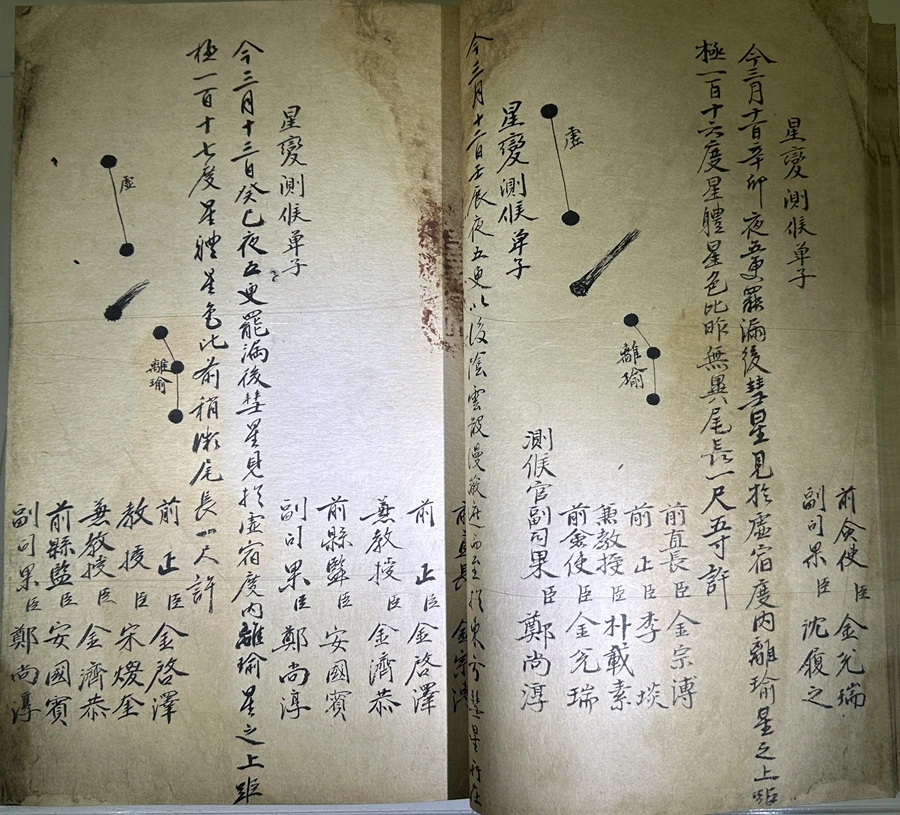 前僉使臣金兌瑞
副司果臣沈履之
星變測候單子
今三月十一日辛卯夜五更罷漏後彗星見於虛宿度內離瑜星之上距
極一百十六度星體星色比昨無異尾長一尺五寸許
虛
離瑜
前直長臣金宗溥
前正臣李埮
兼教授臣朴載素
前僉使臣金兌瑞
測候官副司果臣鄭尚淳
星變測候單子
今三月十二日壬辰夜五更以後陰雲散漫 至於東方彗星行在
前直長臣金宗溥
前正臣金啓澤
兼教授臣金濟恭
前縣監臣安國賓
副司果臣鄭尚淳
星變測候單子
今三月十三日癸巳夜五更罷漏後彗星見於虛宿度內離瑜星之上距
極一百十七度星體星色比前稍微尾長一尺許
虛
離瑜
前正臣金啓澤
教授臣宋㷜奎
兼教授臣金濟恭
前縣監臣安國賓
副司果臣鄭尚淳